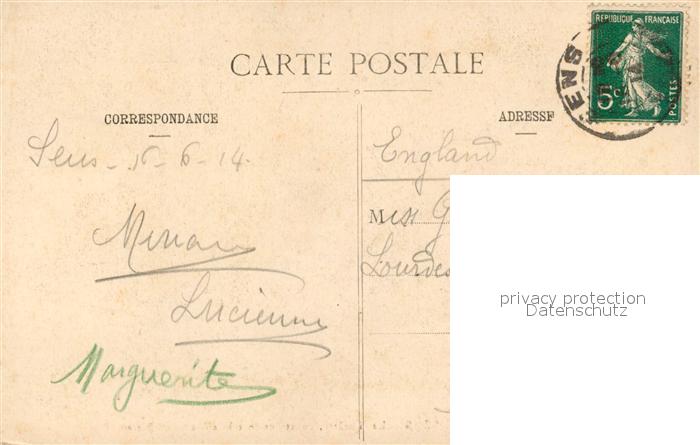 CARTE POSTALE
CORRESPONDANCE
ADRESSE
REPUBLIQUE FRANÇAISE
5c
POSTES
ENS
Sens - 15-6-14.
England
Miss G
Lourdes
Lucienne
Marguerite
privacy protection
Datenschutz